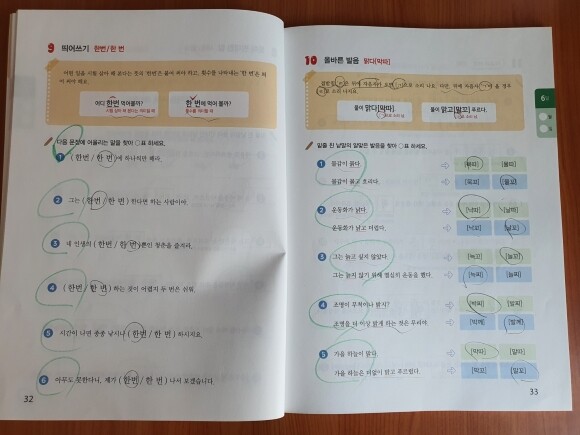 9 띄어쓰기 한번/한 번
어떤 일을 시험 삼아 해 본다는 뜻의 '한번'은 붙여 쓰고, 횟수를 나타내는 '한 번'은 띄
어 써야 해요.
어디 한번 먹어볼까?
시험 삼아 해 본다는 의미일 때
한 번에 먹어 볼까?
횟수를 의미할 때
다음 문장에 어울리는 말을 찾아 ○표 하세요.
1 (한번 / 한 번)에 하나씩만 해라.
2 그는 (한번 / 한 번) 한다면 하는 사람이야.
3 네 인생의 (한번 / 한 번)뿐인 청춘을 즐겨라.
4 (한번 / 한 번) 하는 것이 어렵지 두 번은 쉬워.
5 시간이 나면 종종 낚시나 (한번 / 한 번) 하시지요.
6 아무도 못한다니, 제가 (한번 / 한 번) 나서 보겠습니다.
32
10 올바른 발음 맑다[막따]
물이 맑다[막따].
물이 맑고[말꼬] 푸르다.
밑줄 친 낱말의 알맞은 발음을 찾아 ○표 하세요.
1 물감이 묽다. [묵따] [물따]
물감이 묽고 흐리다. [묵꼬] [물꼬]
2 운동화가 낡다. [낙따] [날따]
운동화가 낡고 더럽다. [낙꼬] [날꼬]
3 그는 늙고 싶지 않았다. [늑꼬] [늘꼬]
그는 늙지 않기 위해 열심히 운동을 했다. [늑찌] [늘찌]
4 조명이 무척이나 밝지? [박찌] [발찌]
조명을 더 이상 밝게 하는 것은 무리야. [박께] [발께]
5 가을 하늘이 맑다. [막따] [말따]
가을 하늘은 더없이 맑고 푸르렀다. [막꼬] [말꼬]
33